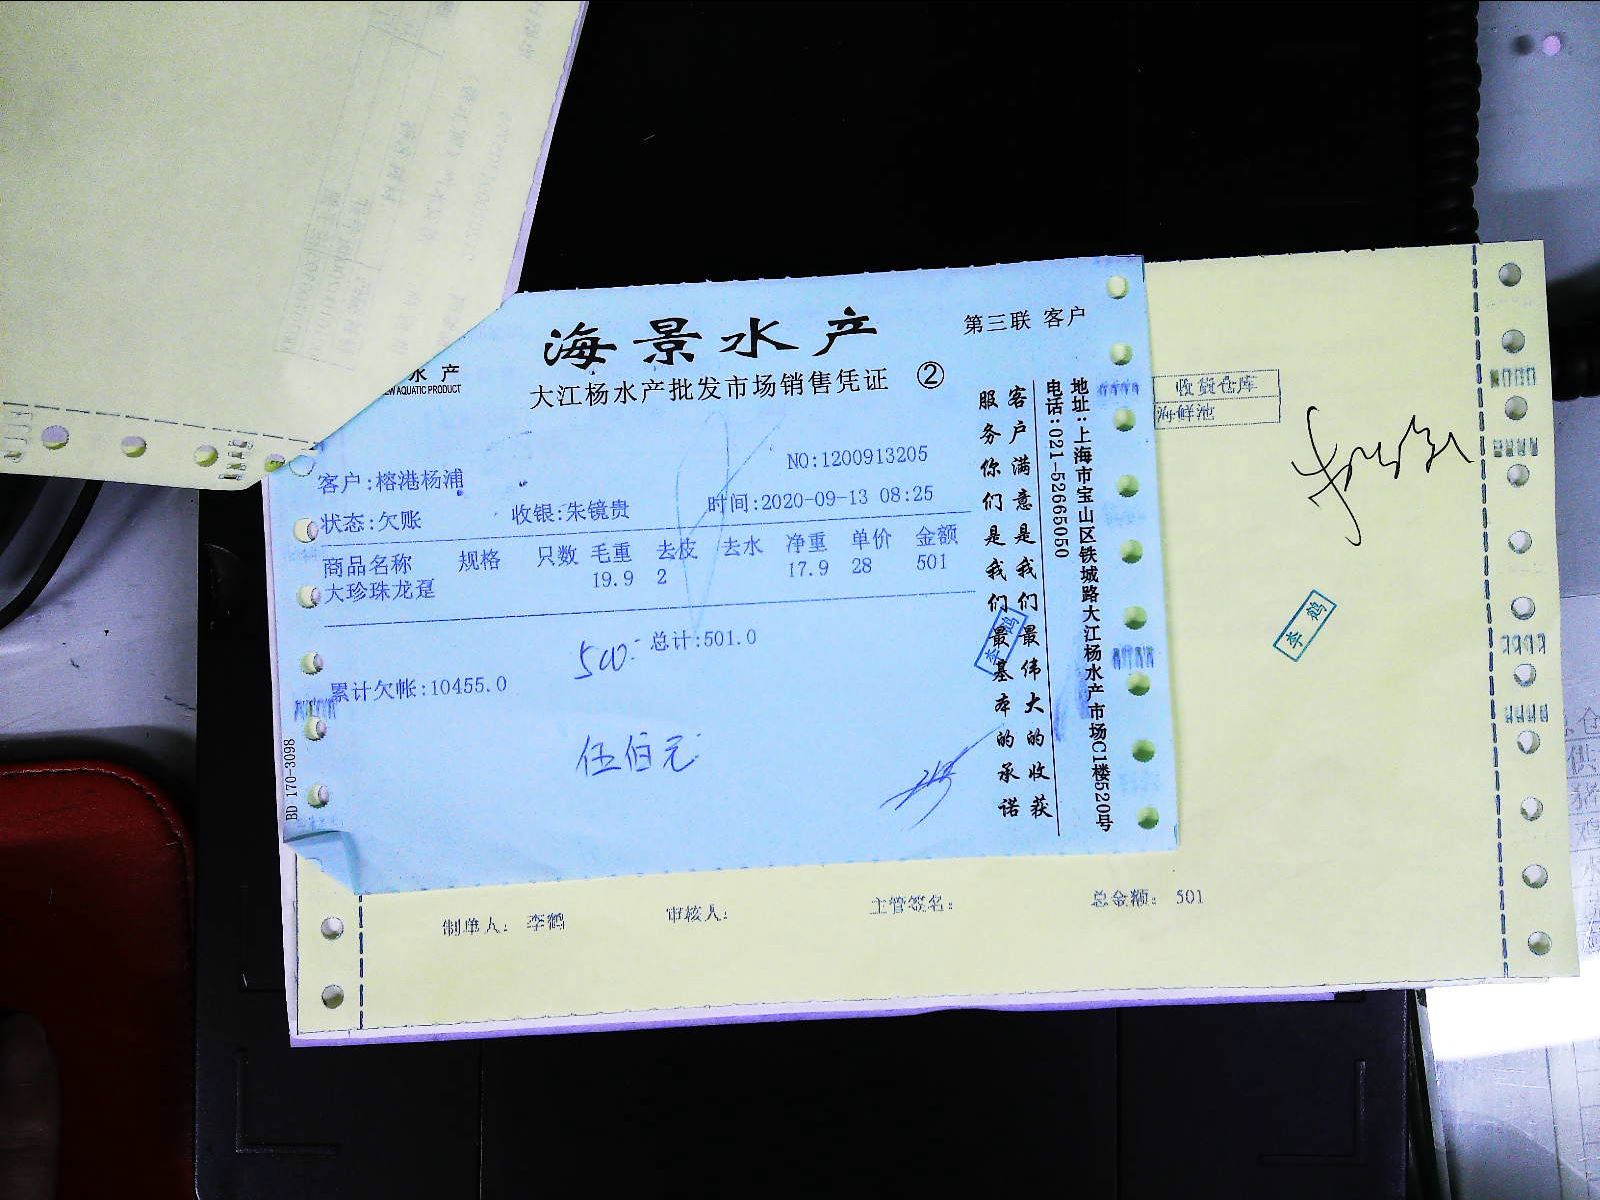 海景水产
第三联 客户
水产
EW AQUATIC PRODUCT
大江杨水产批发市场销售凭证 ②
NO:1200913205
客户:榕港杨浦
状态:欠账 收银:朱镜贵 时间:2020-09-13 08:25
商品名称 规格 只数 毛重 去皮 去水 净重 单价 金额
大珍珠龙趸 19.9 2 17.9 28 501
总计:501.0
500.
累计欠帐:10455.0
伍佰元
BD 170-3098
客户满意是我们最伟大的收获
服务你们是我们最基本的承诺
地址:上海市宝山区铁城路大江杨水产市场C1楼520号
电话:021-52665050
李鹤
收货仓库
海鲜池
李鹤
制单人: 李鹤 审核人: 主管签名: 总金额: 501